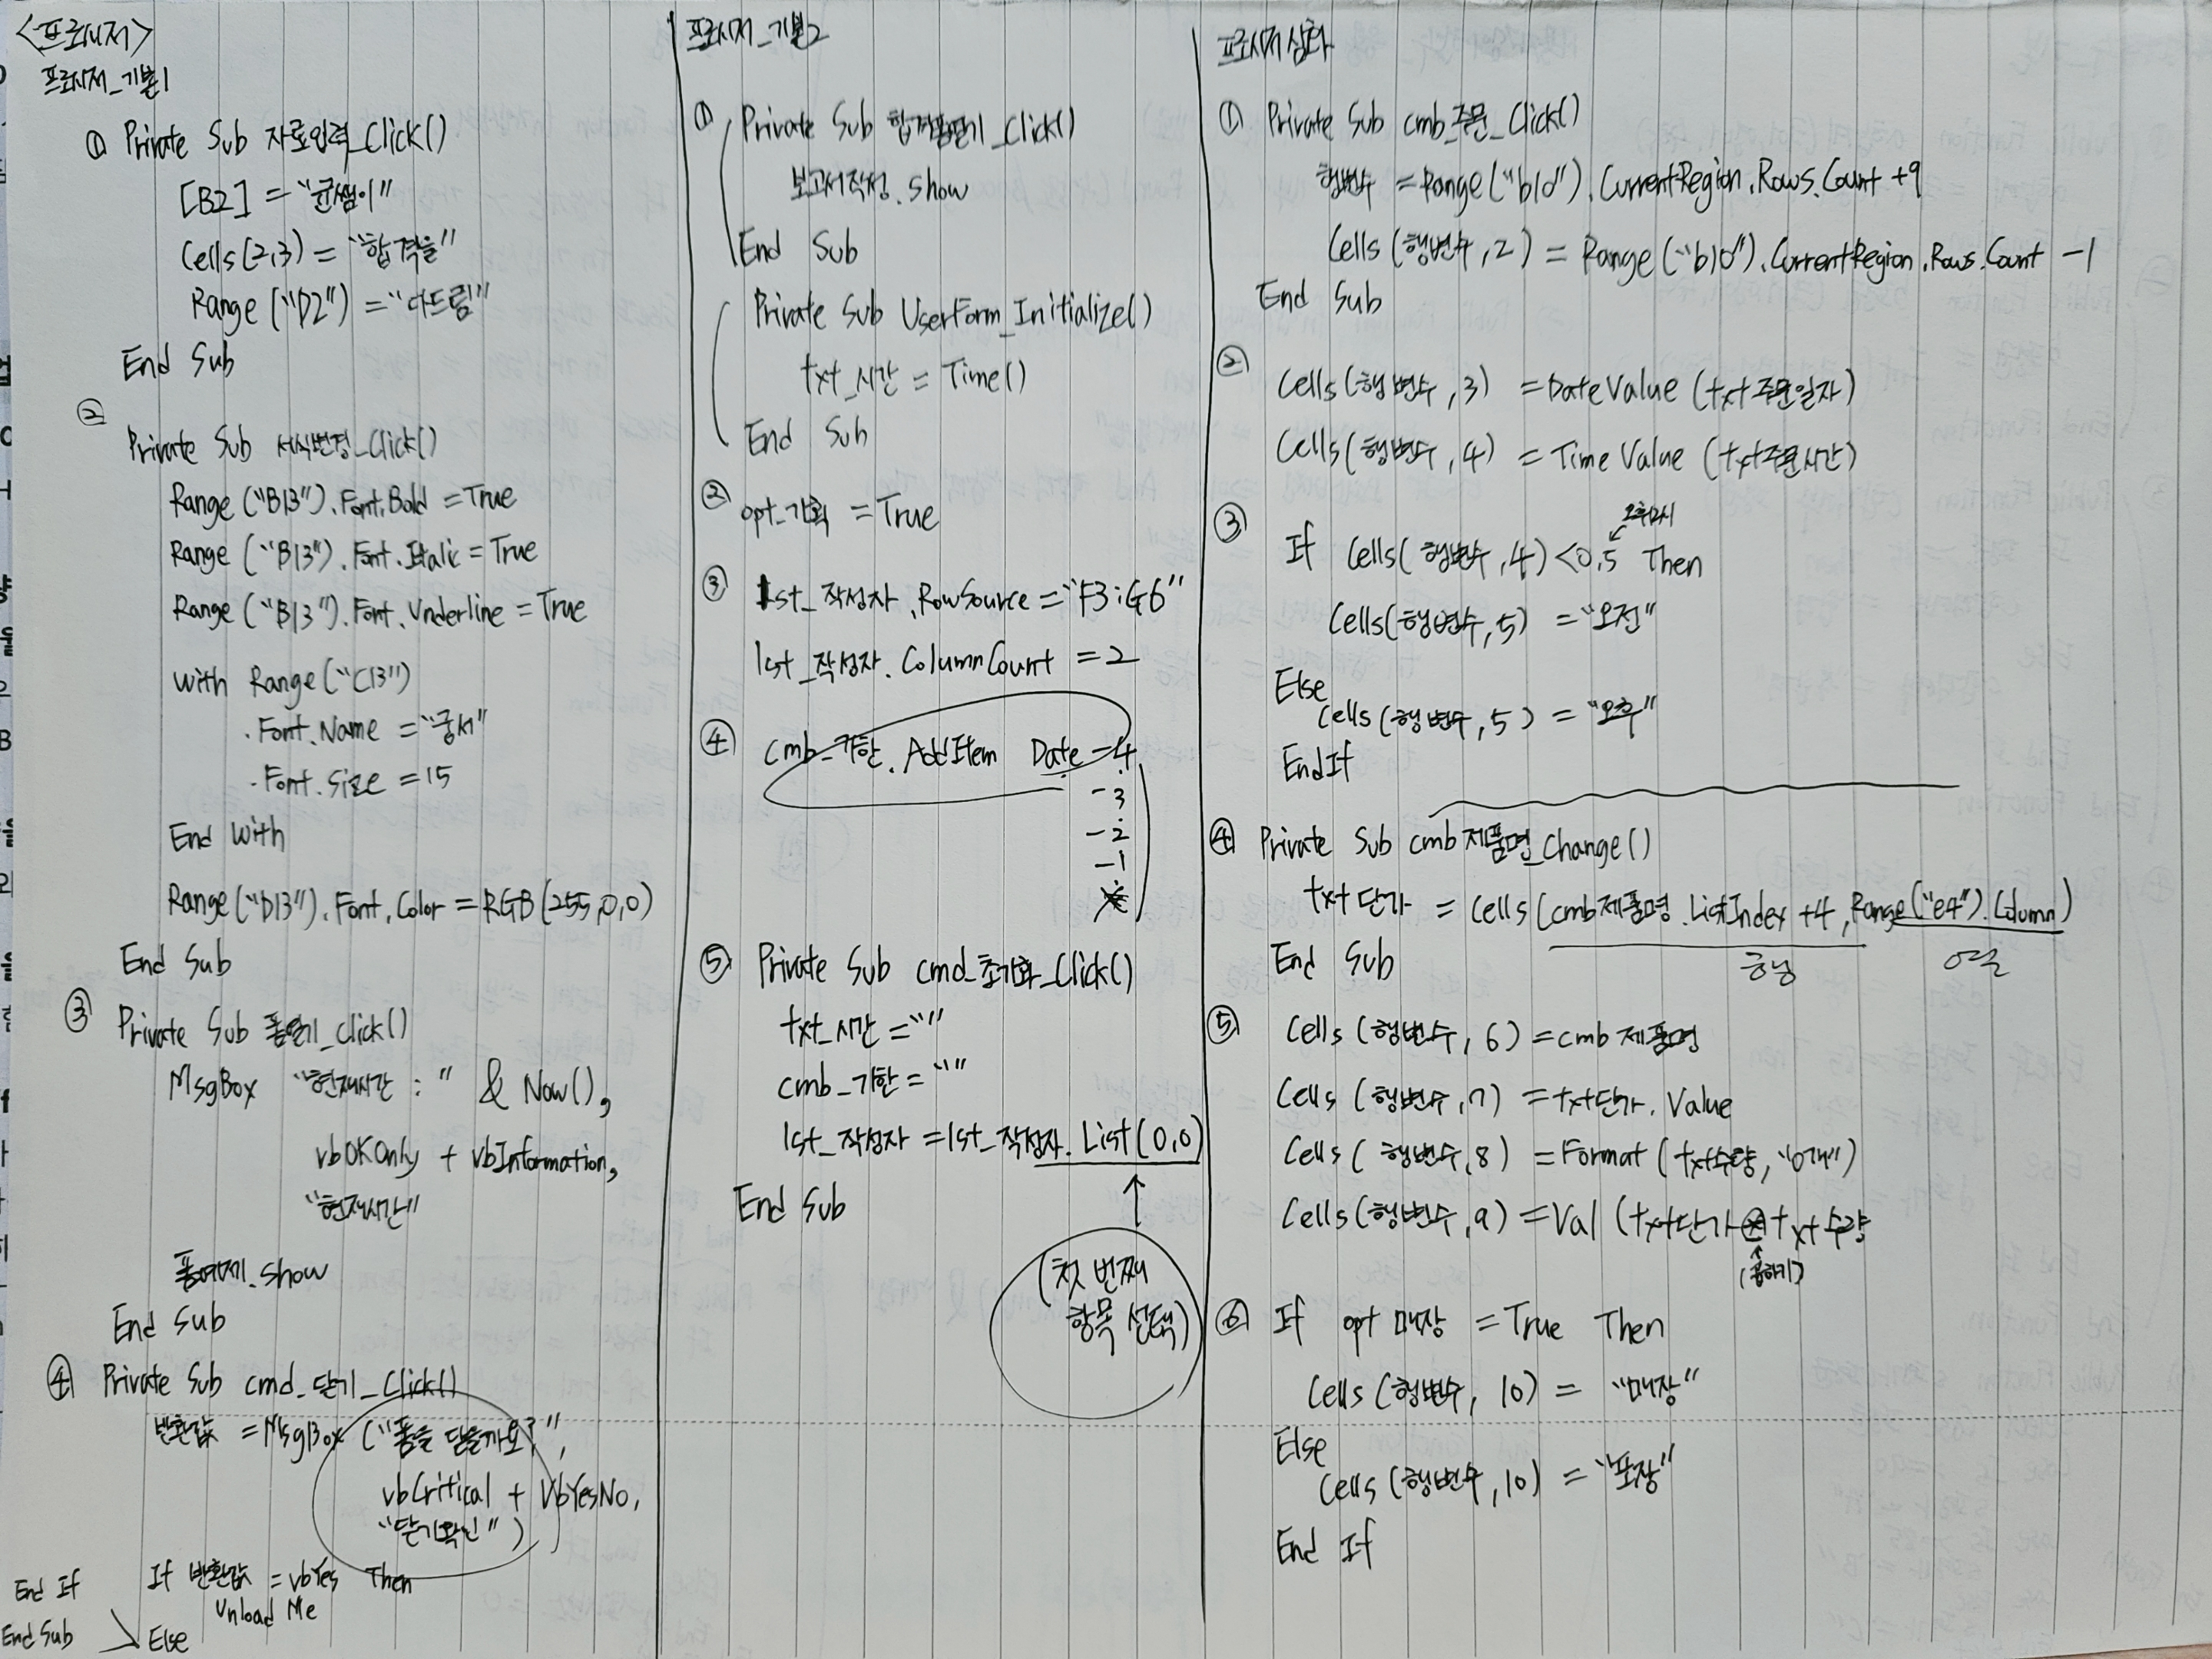 <프로시저>
프로시저_기본1
① Private Sub 자료입력_Click()
[B2] = "균쌤이"
Cells(2,3) = "합격을"
Range("D2") = "다드림"
End Sub
②
Private Sub 서식변경_Click()
Range("B13").Font.Bold = True
Range("B13").Font.Italic = True
Range("B13").Font.Underline = True
With Range("C13")
.Font.Name = "궁서"
.Font.Size = 15
End With
Range("D13").Font.Color = RGB(255,0,0)
End Sub
③ Private Sub 폼열기_Click()
MsgBox "현재시간 : " & Now(),
vbOKOnly + vbInformation,
"현재시간"
폼예제.show
End Sub
④ Private Sub cmd_닫기_Click()
반환값 = MsgBox ("폼을 닫을까요?",
vbCritical + VbYesNo,
"닫기확인")
If 반환값 = vbYes Then
Unload Me
Else
End If
End Sub
프로시저_기본2
① Private Sub 합격폼열기_Click()
보고서작성.show
End Sub
Private Sub UserForm_Initialize()
txt_시간 = Time()
End Sub
② opt_기획 = True
③ lst_작성자.RowSource = "F3:G6"
lst_작성자.ColumnCount = 2
④ cmb_기한.AddItem Date -4
-3
-2
-1
⑤ Private Sub cmd_초기화_Click()
txt_시간 = ""
cmb_기한 = ""
lst_작성자 = lst_작성자.List(0,0)
End Sub
(첫 번째
항목 선택)
프로시저 심화
① Private Sub cmb_주문_Click()
행변수 = Range("b10").CurrentRegion.Rows.Count +9
Cells(행변수,2) = Range("b10").CurrentRegion.Rows.Count -1
End Sub
②
Cells(행변수,3) = DateValue (txt주문일자)
Cells(행변수,4) = TimeValue (txt주문시간)
오후12시
③ If Cells(행변수,4) <0.5 Then
Cells(행변수,5) = "오전"
Else
Cells(행변수,5) = "오후"
End If
④ Private Sub cmb제품명_Change()
txt단가 = Cells(cmb제품명.ListIndex +4, Range("e4").Column)
행 열
End Sub
⑤ Cells(행변수,6) = cmb제품명
Cells(행변수,7) = txt단가.Value
Cells(행변수,8) = Format(txt수량,"0개")
Cells(행변수,9) = Val (txt단가 * txt수량
(곱하기)
⑥ If opt매장 = True Then
Cells(행변수, 10) = "매장"
Else
Cells(행변수,10) = "포장"
End If